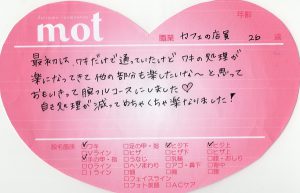 mot
職業 カフェの店員
年齢
26 歳
最初は、ワキだけで通っていたけど ワキの処理が
楽になってきて他の部分も楽したいな〜 と思って
おもいきって腕フルコースにしました♡
自己処理が減ってめちゃくちゃ楽なりました！
脱毛箇所
ワキ
Vライン
Iライン
手の甲・指
足の甲・指
うなじ
ヘソまわり
鼻
フェイスライン
フォト美顔
ヒジ下
ヒザ下
乳輪
アゴ・鼻下
胸
ヒジ上
ヒザ上
背中
腰
ACケア